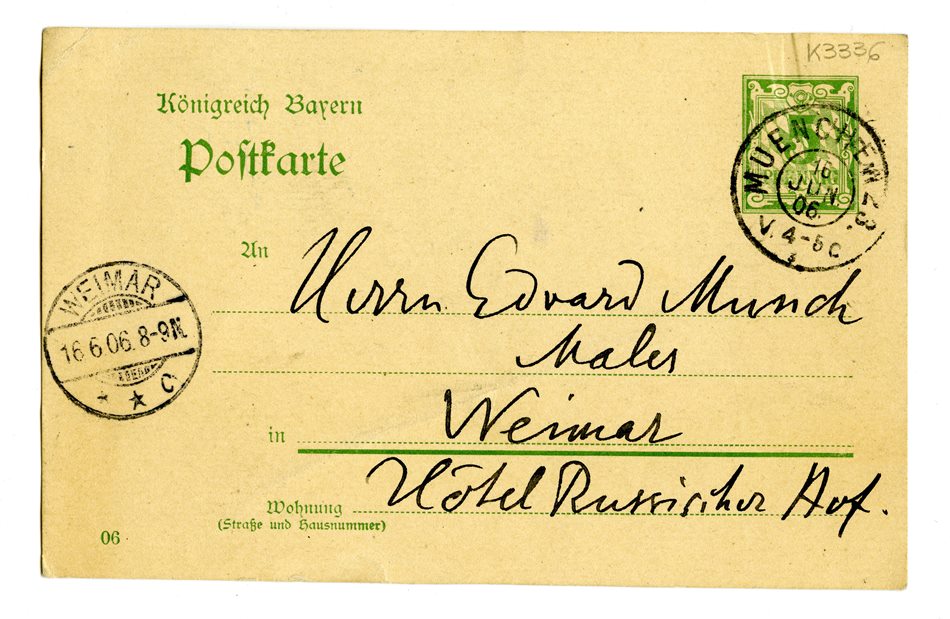 K3336
Königreich Bayern
Postkarte
MUENCHEN 23.
16
JUN
06.
V. 4-5 C
An
Herrn Edvard Munch
Maler
WEIMAR
16.6.06.8-9N.
* * C
in Weimar
Hôtel Russischer Hof.
Wohnung
(Straße und Hausnummer)
06